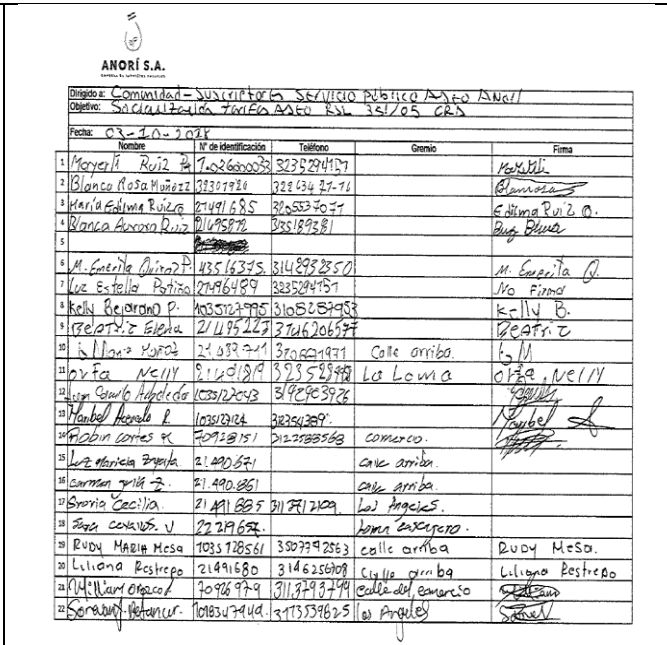 ANORÍ S.A.
Dirigido a: Comunidad - Suscriptores Servicio Público Aseo Anorí
Objetivo: Socialización tarifa Aseo RSL 351/05 CRA
Fecha: 03-10-2018
Nombre N° de identificación Teléfono Gremio Firma
1 Ruiz 3235294157
2 Blanca Rosa Muñoz 32307920
3 María Edilma Ruiz 21491685 3205537077 Edilma Ruiz O.
4 Blanca Aurora Ruiz 21695872 3135189381
5
6 M. Emerita Quiroz P. 43516375. 3142932350 M. Emerita Q.
7 Luz Estella Patiño 21496489 3235294157 No Firma
8 Kelly Bejarano P. 1035127995 3108287953 Kelly B.
9 BEATRIZ Elena 21495227 3146206577 BEATRIZ
10 Muñoz 21.639.711 Calle arriba. L M
11 Orfa Nelly La Loma Orfa Nelly
12 Camilo Agudelo 1035127043 3192903926
13 Maribel Acevedo R. 1035127124 312754389. Maribel A
14 Robin cortes 70928151 3122588568 comercio.
15 Luz Mariela Zapata 21.490.671 calle arriba.
16 Carmen Z. 21.490.861 calle arriba.
17 Gloria Cecilia. 21491885 3117712109 Los Angeles.
18 Sara J 22219657.
19 RUDY MARIA Mesa 1035128561 3507792563 calle arriba RUDY Mesa.
20 Liliana Restrepo 21491680 3146256708 Calle arriba Liliana Restrepo
21 William Orozco 70926979 3113793799 calle del comercio
22 Betancur. 1018347949. 3173539825 los Angeles